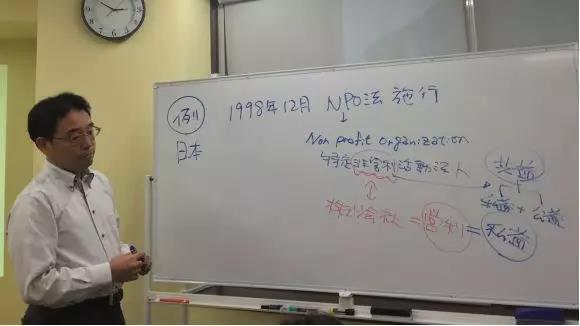 例
1998年12月 NPO法 施行
↓
日本
Non profit organization
特定非営利活動法人
共益
私益 + 公益
株式会社 = 営利 = 私益